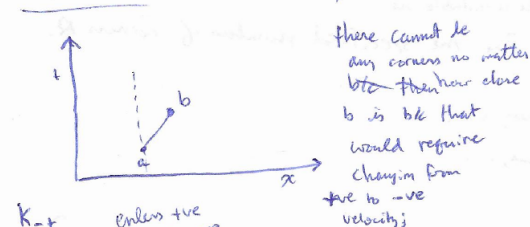 t
b
a
x
there cannot be
any corners no matter
b/c then how close
b is b/c that
would require
changin from
+ve to -ve
velocity;
K-+
+ve